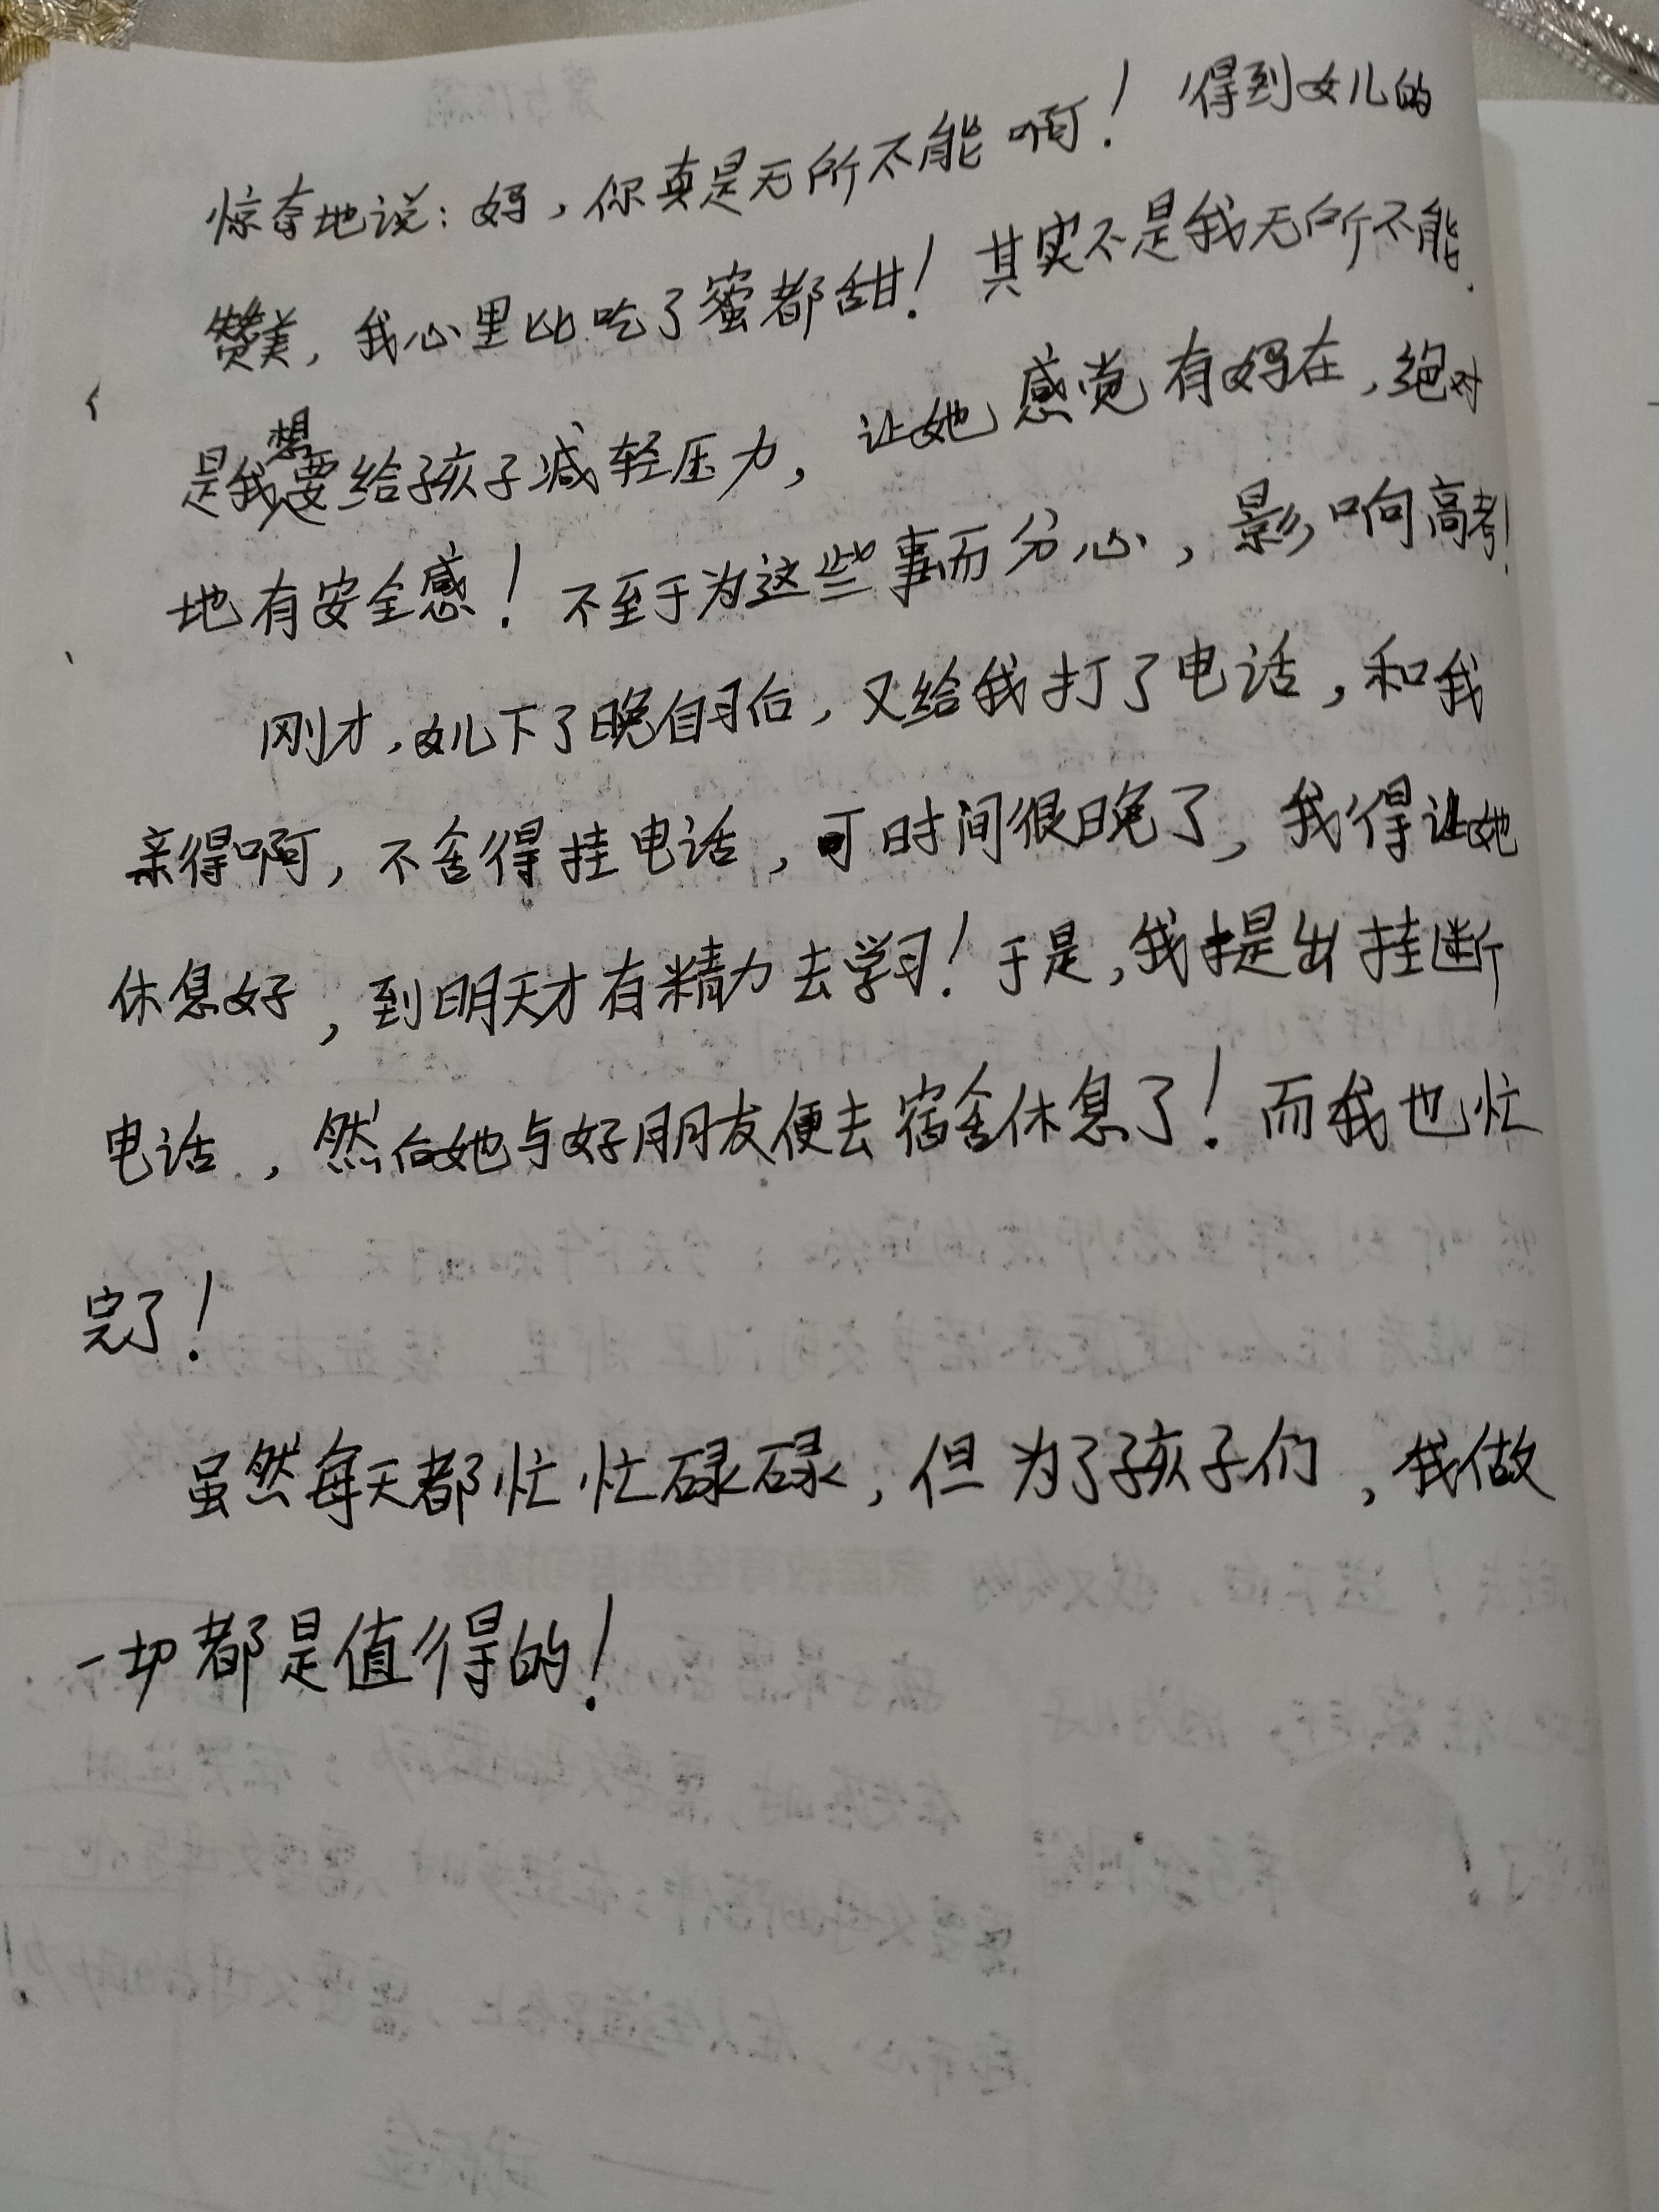 惊奇地说：妈，你真是无所不能啊！得到女儿的
赞美，我心里比吃了蜜都甜！其实不是我无所不能，
是我想要给孩子减轻压力，让她感觉有妈在，绝对
地有安全感！不至于为这些事而分心，影响高考！
刚才，女儿下了晚自习后，又给我打了电话，和我
亲得啊，不舍得挂电话，可时间很晚了，我得让她
休息好，到明天才有精力去学习！于是，我提出挂断
电话，然后她与好朋友便去宿舍休息了！而我也忙
完了！
虽然每天都忙忙碌碌，但为了孩子们，我做
一切都是值得的！